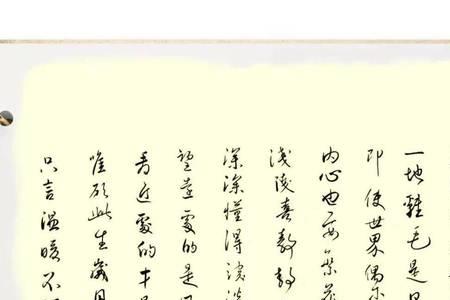 一地雞毛是日
即使世界偶尔
内心也要繁花
浅浅喜静静
深深懂得淡淡
望远處的是风
看近處的才是
唯愿此生歲月
只言温暖不